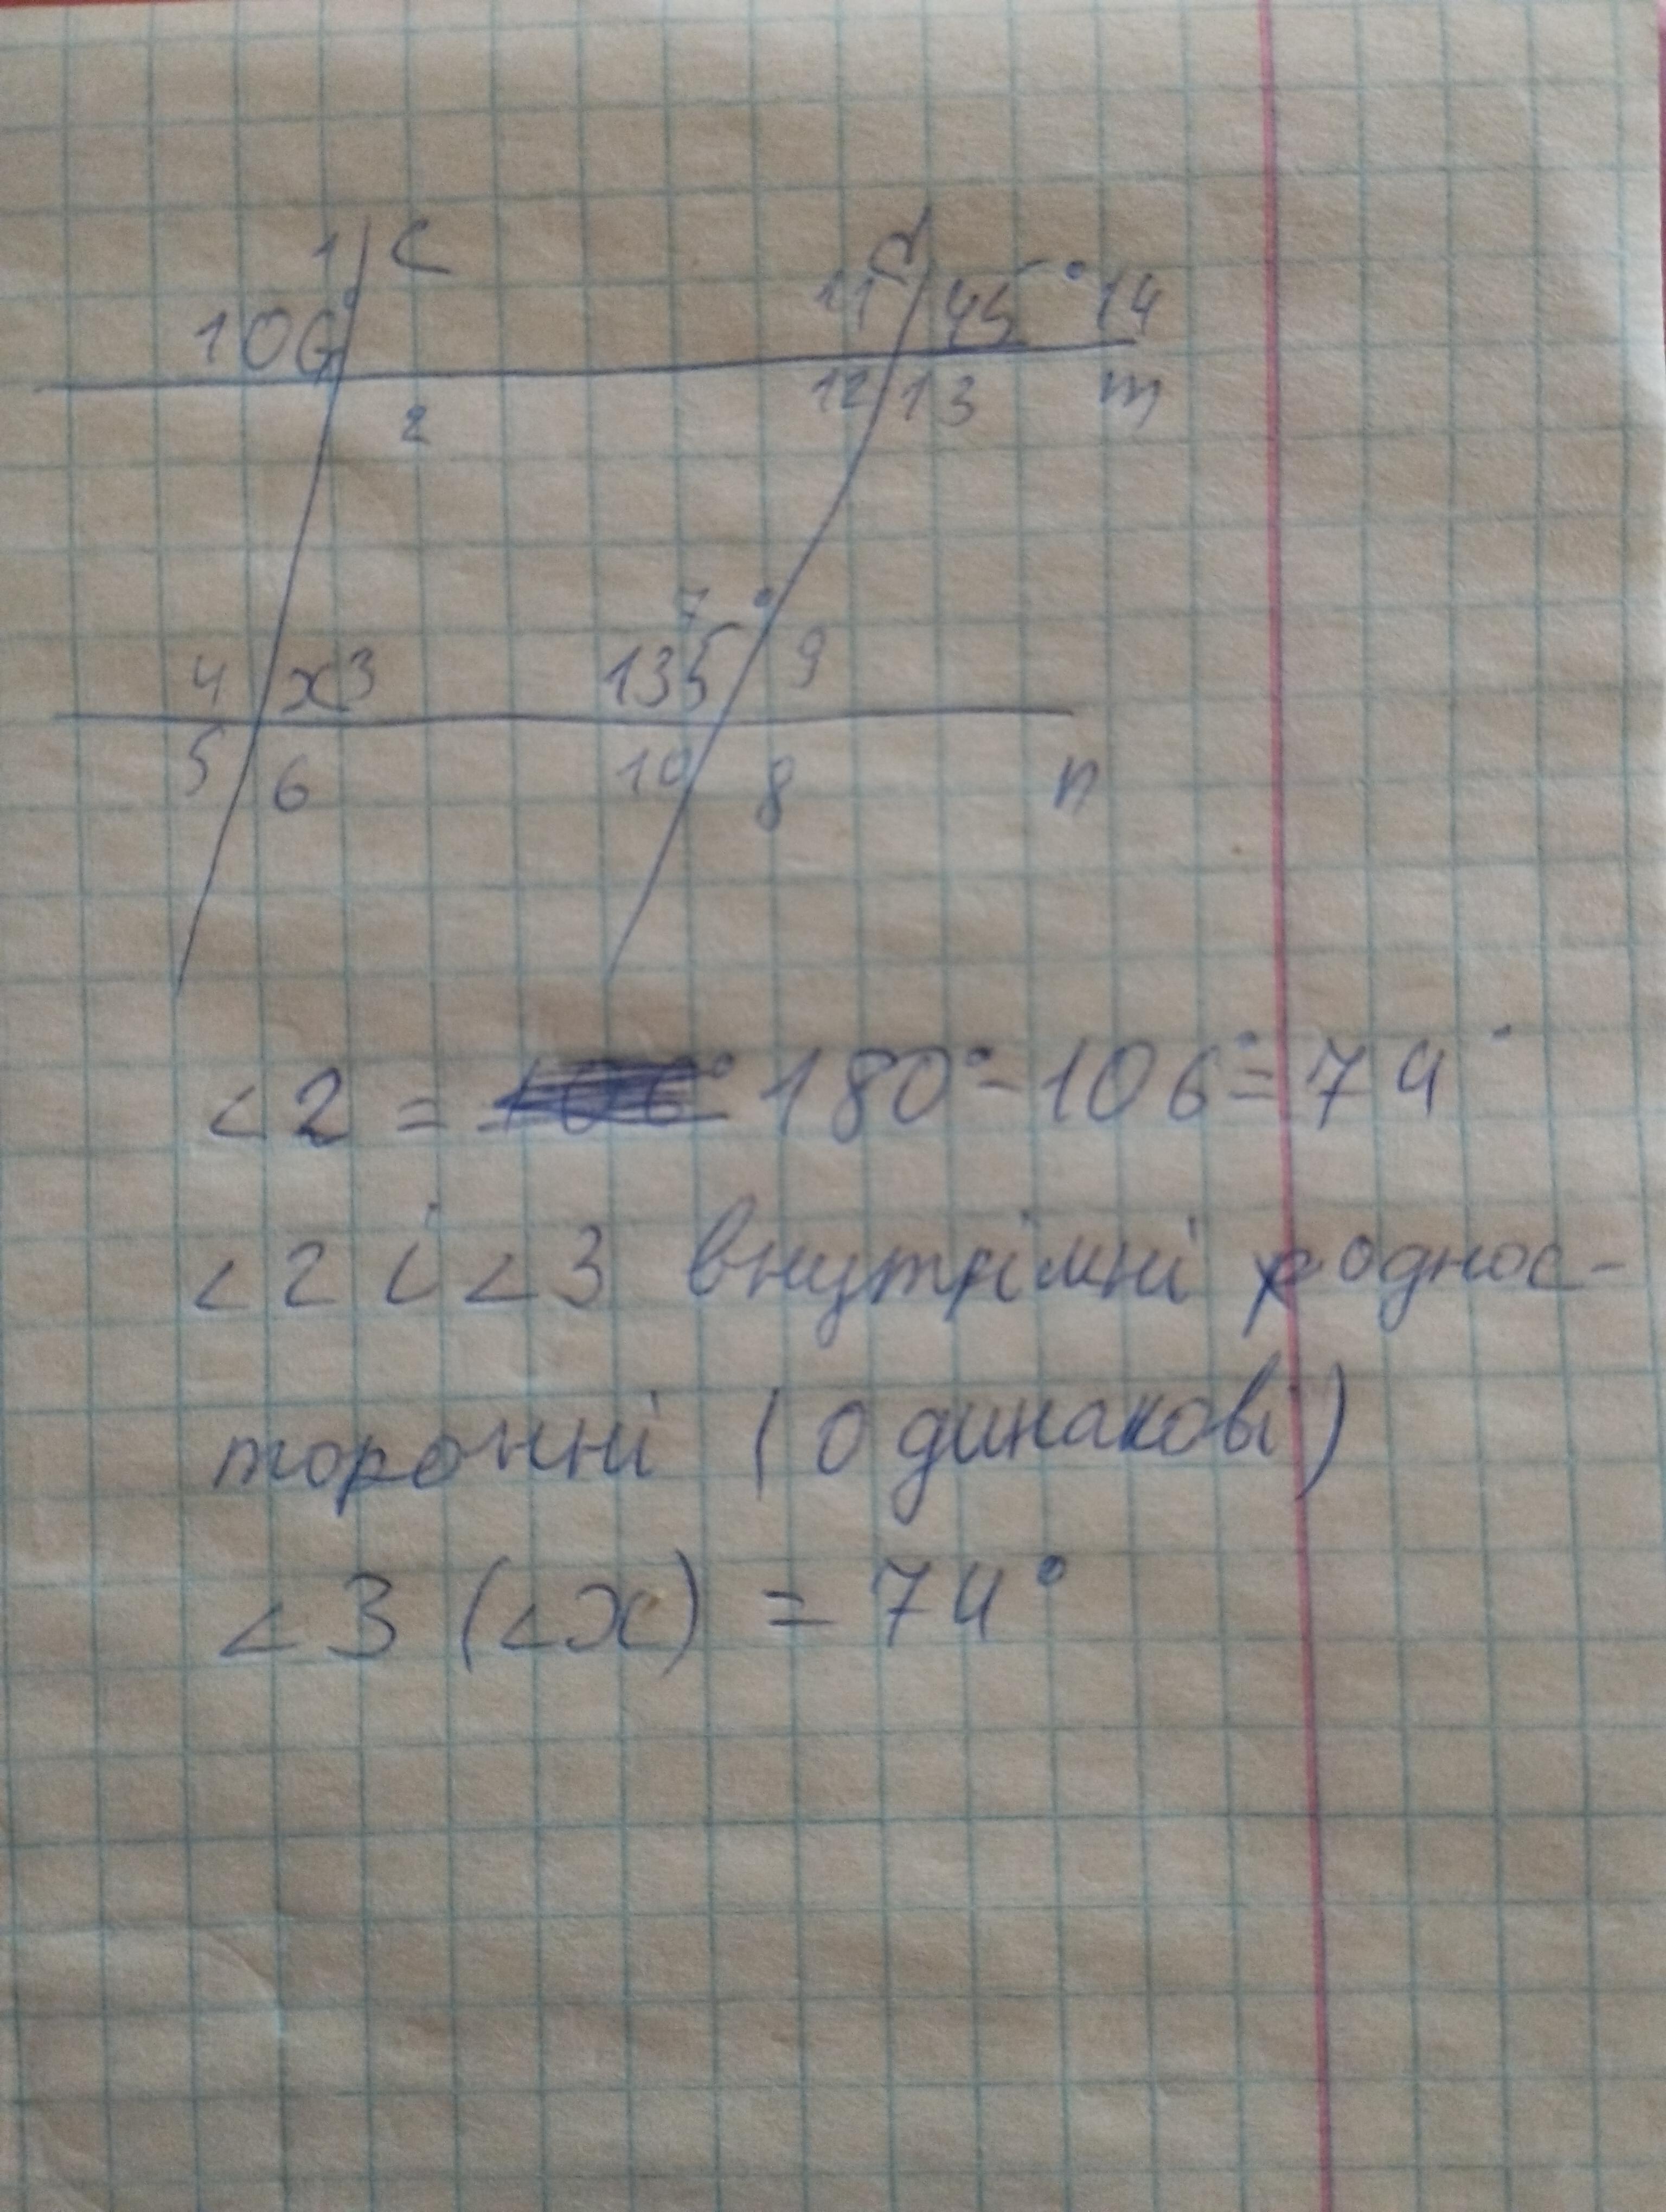 1 c
d
106°
11 45° 14
12 13 m
2
7
4 x 3 135° 9
5 6 10 8 n
<2 = 180° - 106° = 74°
<2 і <3 внутрішні однос-
торонні (одинакові)
<3 (<x) = 74°